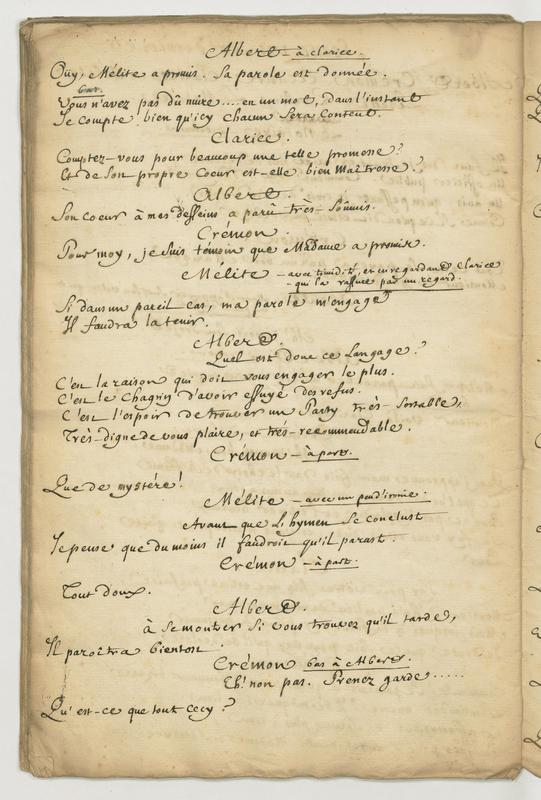 Albert – à clarice.
Oüy, Mélite a promis. Sa parole est donnée.
bas.
Vous n'avez pas dû nuire.... en un mot, dans l'instant
Je compte bien qu'icy chacun Sera Content.
Clarice.
Comptez-vous pour beaucoup une telle promesse?
Et de Son propre Coeur est-elle bien Maîtresse?
Albert.
Son coeur à mes desseins a parû très-Soûmis.
Crémon.
Pour moy, je Suis témoin que Madame a promis.
Mélite – avec timidité, en en regardant Clarice
– qui la rassure par un regard.
Si dans un pareil cas, ma parole m'engage
Il faudra la tenir.
Albert.
Quel est donc ce Langage?
C'est la raison qui doit vous engager le plus.
C'est le Chagrin d'avoir essuyé des refus.
C'est l'espoir de trouver un Party très-Sortable,
Très-digne de vous plaire, et trés-recommendable.
Crémon – à part.
Que de mystére!
Mélite – avec un peu d'ironie.
Avant que L'hymen Se conclust
Je pense que du moins il faudroit qu'il parast.
Crémon – à part.
Tout doux.
Albert.
à Se montrer Si vous trouvez qu'il tarde,
Il paroîtra bientost.
Crémon bas à Albert.
Eh! non pas. Prenez garde.....
Qu'est-ce que tout Cecy?